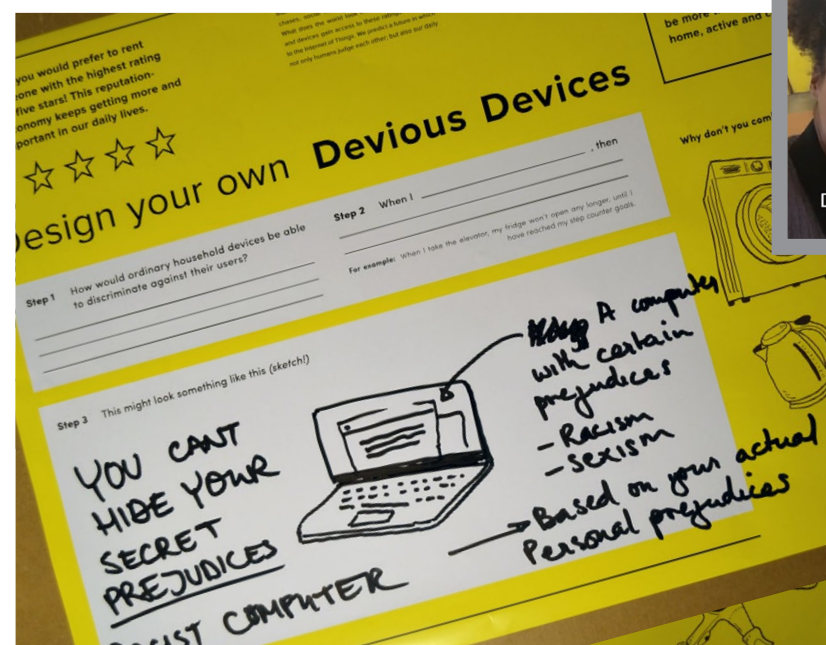 you would prefer to rent
one with the highest rating
five stars! This reputation-
onomy keeps getting more and
portant in our daily lives.
What does the world
and devices gain access to these
to the Internet of Things. We predict a future in which
not only humans judge each other, but also our daily
be more
home, active and
esign your own Devious Devices
Why don't you com
Step 1 How would ordinary household devices be able
to discriminate against their users?
Step 2 When I , then
For example: When I take the elevator, my fridge won't open any longer, until I
have reached my step counter goals.
Step 3 This might look something like this (sketch!)
YOU CANT
HIDE YOUR
SECRET
PREJUDICES
CIST COMPUTER
A computer
with certain
prejudices
- Racism
- Sexism
Based on your actual
Personal prejudices
D